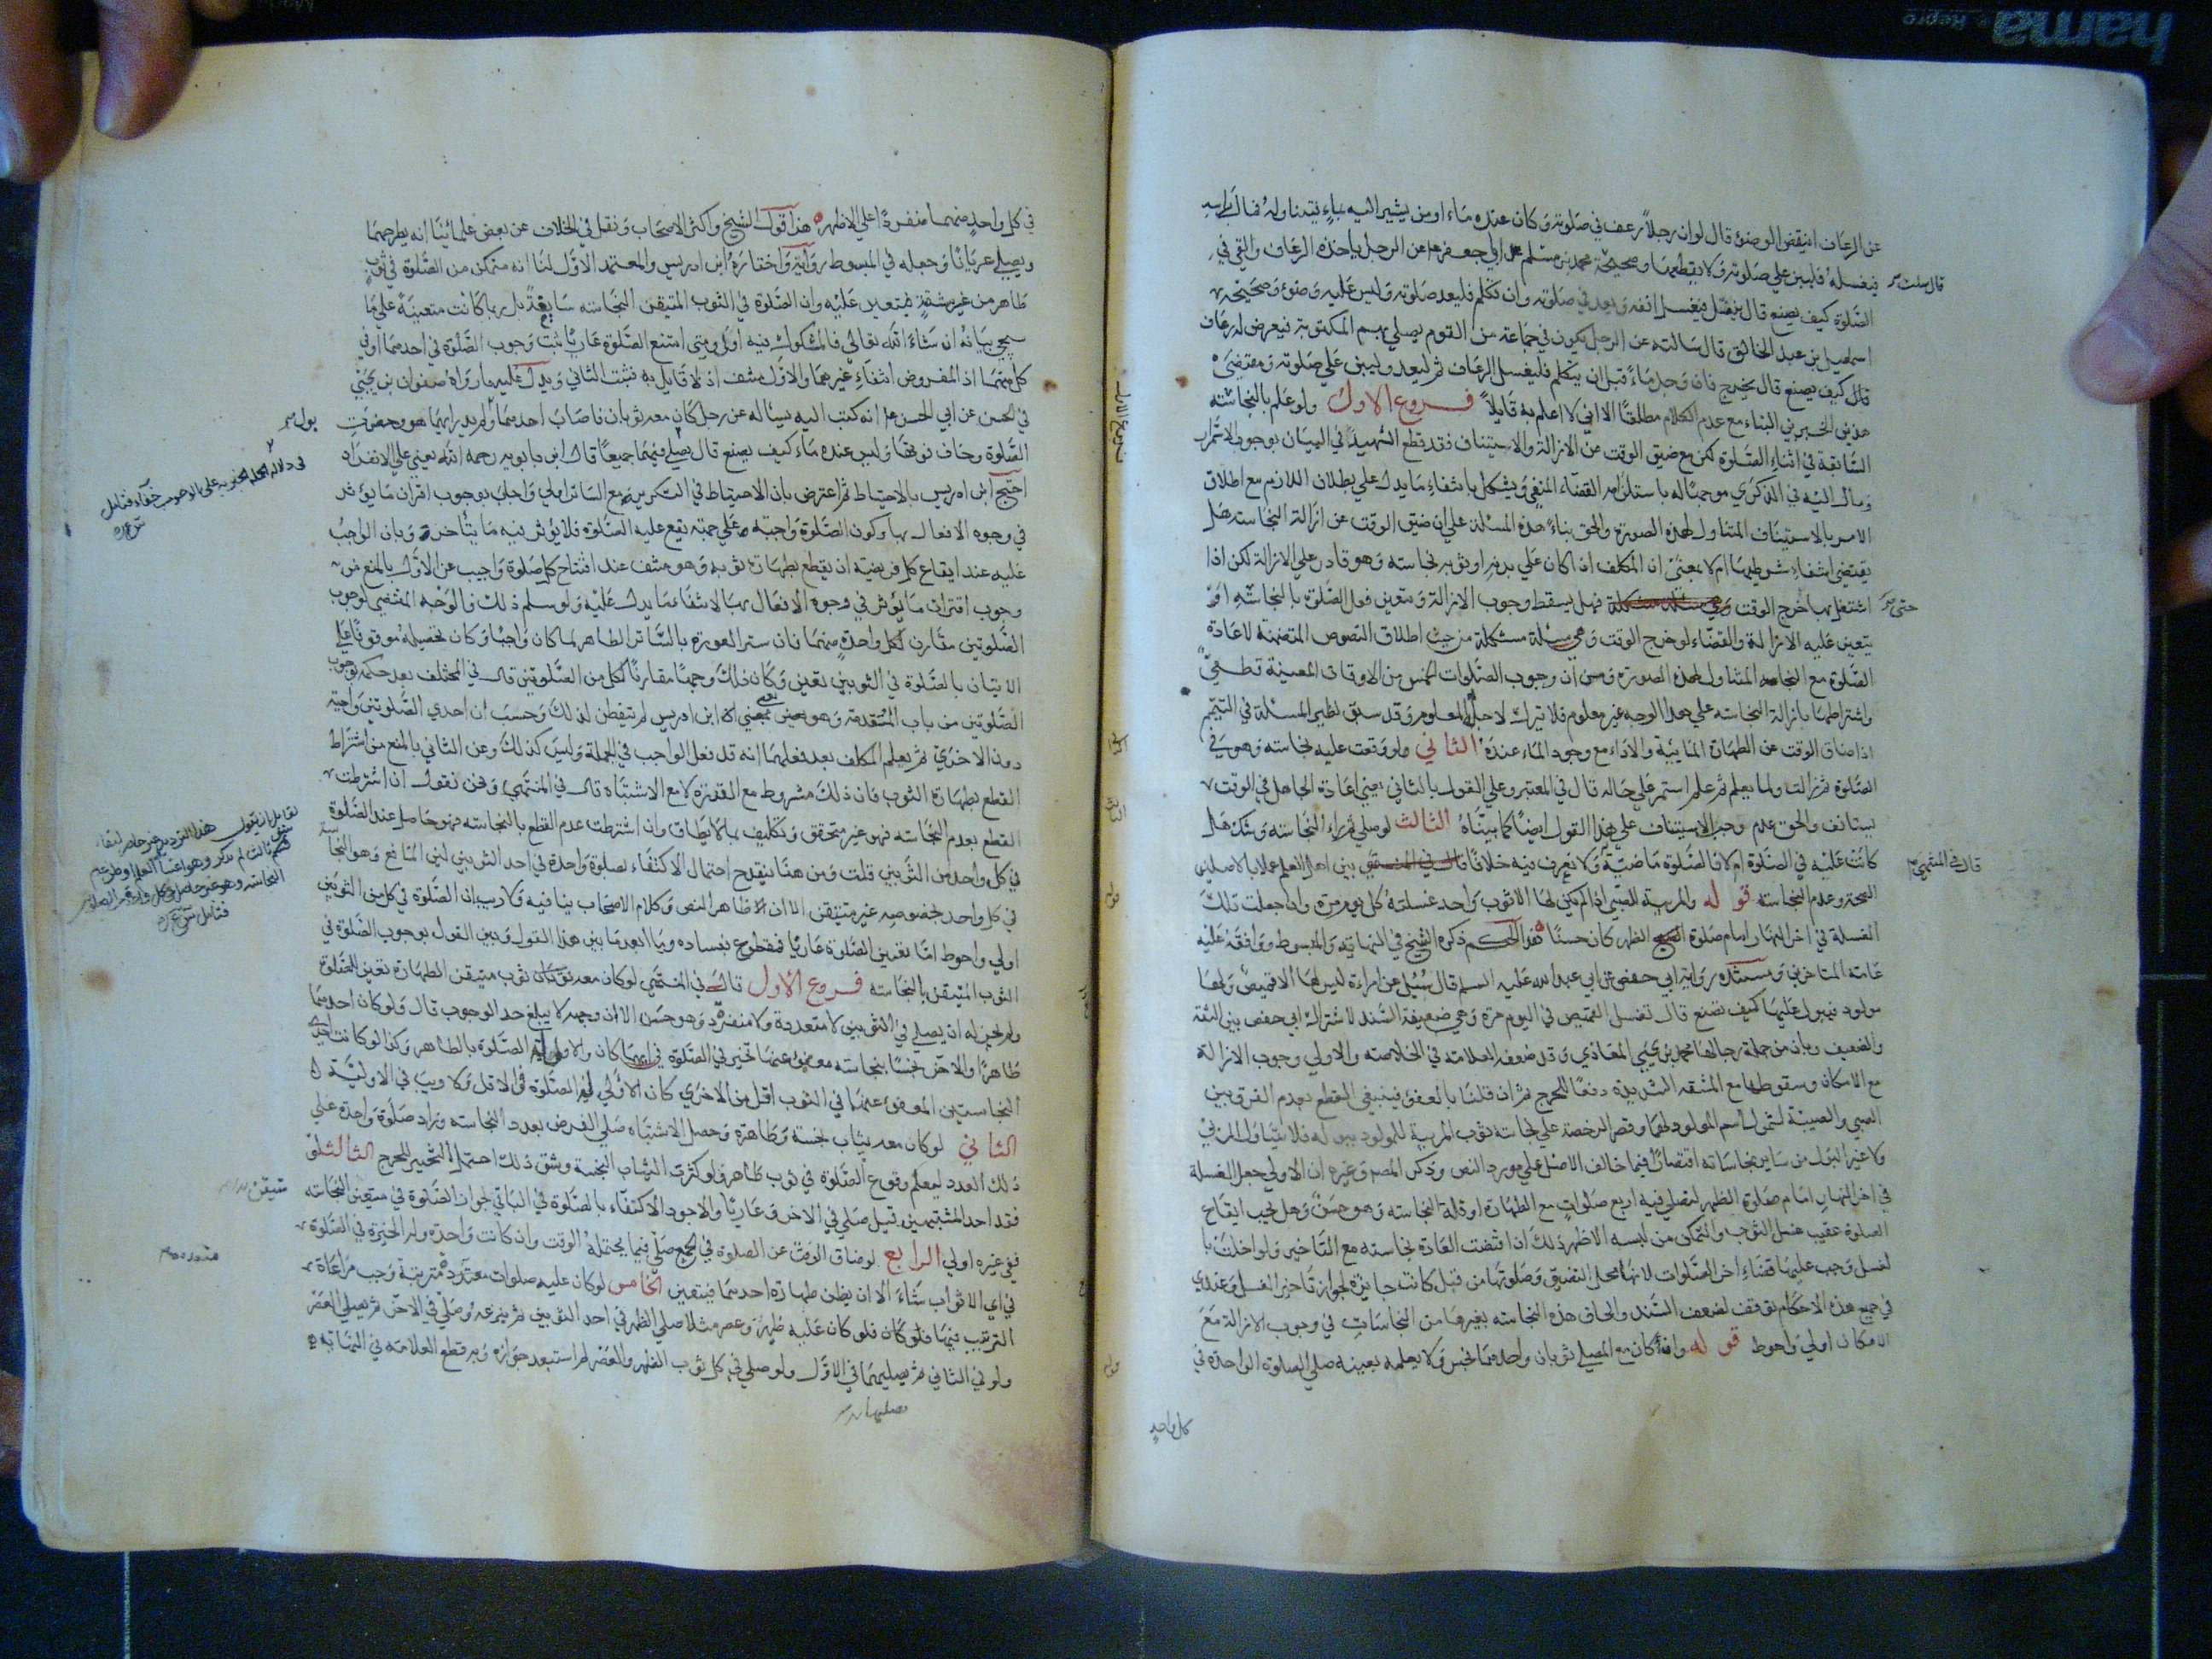 عن الرعاف اينقض الوضوء قال لو ان رجلاً رعف في صلوته وكان عنده ماء او من يشير اليه بماء يتناوله فمال براسه
فيغسله فليبن على صلوته ولا يقطعها وصحيحة محمد بن مسلم عن ابي جعفر ع عن الرجل ياخذه الرعاف والقي في
قال سالت
الصلوة كيف يصنع قال ينفتل فيغسل انفه ويعود في صلوته وان تكلم فليعد صلوته وليس عليه وضوء وصحيحة
اسمعيل بن عبد الخالق قال سالته عن الرجل يكون في جماعة من القوم يصلي بهم المكتوبة فيعرض له رعاف
قال كيف يصنع قال يخرج فان وجد ماء قبل ان يتكلم فليغسل الرعاف ثم ليعد وليبن على صلوته ومقتضى
هذين الخبرين البناء مع عدم الكلام مطلقا الا اني لا اعلم به قايلاً فروع الاول ولو علم بالنجاسة
السابقة في اثناء الصلوة لكن مع ضيق الوقت عن الازالة والاستيناف فقد قطع الشهيد في البيان بوجوب الاستمرار
ومال اليه في الذكرى موجها له باستلزامه القضاء المنفي ويشكل بانتفاء ما يدل على بطلان اللازم مع اطلاق
الامر بالاستيناف المتناول لهذه الصورة والحق بناء هذه المسئلة على ان ضيق الوقت عن ازالة النجاسة هل
يقتضي انتفاء شرطيتها ام لا بمعنى ان المكلف اذا كان على بدنه او ثوبه نجاسة وهو قادر على الازالة لكن اذا
اشتغل بها خرج الوقت فهل يسقط وجوب الازالة ويتعين فعل الصلوة بالنجاسة او
حتى
يتعين عليه الازالة والقضاء لو خرج الوقت وهي مسئلة مشكلة من حيث اطلاق النصوص المتضمنة لاعادة
الصلوة مع النجاسة المتناول لهذه الصورة ومن ان وجوب الصلوات الخمس من الاوقات المعينة قطعي
واشتراطها بازالة النجاسة على هذا الوجه غير معلوم فلا يترك لاجله المعلوم وقد سبق نظير المسئلة في التيمم
اذا ضاق الوقت عن الطهارة المائية والاداء مع وجود الماء عنده الثاني ولو وقعت عليه نجاسة وهو في
الصلوة ثم زالت ولما يعلم ثم علم استمر على حاله قال في المعتبر وعلى القول بالثاني يعني اعادة الجاهل في الوقت
يستانف والحق عدم وجوب الاستيناف على هذا القول ايضاً كما بيناه الثالث لو صلى ثم راى النجاسة وشك هل
كانت عليه في الصلوة ام لا فالصلوة ماضية ولا نعرف فيه خلافا بين اهل العلم عملا بالاصلين
قال في المنتهى
الصحة وعدم النجاسة قوله والمربية للصبي اذا لم يكن لها الا ثوب واحد غسلته كل يوم مرة وان جعلت تلك
الغسلة في اخر النهار امام صلوة الظهر كان حسنا هذا الحكم ذكره الشيخ في النهاية والمبسوط ووافقه عليه
عامة المتاخرين ومستنده رواية ابي حفص عن ابي عبد الله عليه السلم قال سئل عن امراة ليس لها الا قميص ولها
مولود فيبول عليها كيف تصنع قال تغسل القميص في اليوم مرة وهي ضعيفة السند لاشتراك ابي حفص بين الثقة
والضعيف وبان من جملة رجالها محمد بن يحيى المعاذي وقد ضعفه العلامة في الخلاصة والاولى وجوب الازالة
مع الامكان وسقوطها مع المشقة الشديدة دفعا للحرج ثم ان قلنا بالعفو فينبغي القطع بعدم الفرق بين
الصبي والصبية لشمول اسم المولود لهما وقصر الرخصة على نجاسة ثوب المربية للمولود ببوله فلا يتناول المربي
ولا غير البول من ساير نجاساته اقتصارا فيما خالف الاصل على مورد النص وذكر المصنف وغيره ان الاولى جعل الغسلة
في اخر النهار امام صلوة الظهر لتصلي فيه اربع صلوات مع الطهارة او قلة النجاسة وهو حسن وهل يجب ايقاع
الصلوة عقيب غسل الثوب والتمكن من لبسه الاظهر ذلك اذا اقتضت العادة نجاسته مع التاخير ولو اخلت با
لغسل وجب عليها قضاء اخر الصلوات لانها محل التضيق وصلوتها من قبل كانت جايزة لجواز تاخير الغسل وعندي
في جميع هذه الاحكام توقف لضعف السند والحاق هذه النجاسة بغيرها من النجاسات في وجوب الازالة مع
الامكان اولى واحوط قوله واذا كان مع المصلي ثوبان واحدهما نجس ولا يعلمه بعينه صلى الصلوة الواحدة في
كل واحد
في كل واحد منهما منفردا على الاظهر هذا قول الشيخ واكثر الاصحاب ونقل في الخلاف عن بعض علمائنا انه يطرحهما
ويصلي عريانا وجعله في المبسوط رواية واختاره ابن ادريس والمعتمد الاول لنا انه متمكن من الصلوة في ثوب
طاهر من غير مشقة فيتعين عليه وان الصلوة في الثوب المتيقن النجاسة سايغة بل ربما كانت متعينة على ما
سيجي بيانه ان شاء الله تعالى فالمشكوك فيه اولى ومتى امتنع الصلوة عاريا ثبت وجوب الصلوة في احدهما او في
كل منهما اذ المفروض انتفاء غيرهما والاول منتف اذ لا قايل به فثبت الثاني ويدل عليه ما رواه صفوان بن يحيى
في الحسن عن ابي الحسن ع انه كتب اليه يسئاله عن رجل كان معه ثوبان فاصاب احدهما ولم يدر ايهما هو وحضرت
بول
الصلوة وخاف فوتها وليس عنده ماء كيف يصنع قال يصلي فيهما جميعا قال ابن بابويه رحمه الله يعني على الانفراد
احتج ابن ادريس بالاحتياط ثم اعترض بان الاحتياط في التكرير مع الساتر اولى واجاب بوجوب اقتران ما يؤثر
في وجوه الافعال بها وكون الصلوة واجبة وجه تقع عليه الصلوة فلا يؤثر فيه ما يتاخر وبان الواجب
عليه عند ايقاع كل فريضة ان يقطع بطهارة ثوبه وهو منتف عند افتتاح كل صلوة واجيب عن الاول بالمنع من
وجوب اقتران ما يؤثر في وجوه الافعال بها لانتفاء ما يدل عليه ولو سلم ذلك فالوجه المقتضي لوجوب
الصلوتين مقارن لكل واحدة منهما فان ستر العورة بالساتر الطاهر لما كان واجبا وكان تحصيله موقوفا على
الاتيان بالصلوة في الثوبين تعين وكان ذلك وجها مقارنا لكل من الصلوتين قال في المختلف بعد حكمه بوجوب
الصلوتين من باب المقدمة وابن ادريس لم يتفطن لذلك وحسب ان احدى الصلوتين واجبة
دون الاخرى ثم يعلم المكلف بعد فعلهما انه قد فعل الواجب في الجملة وليس كذلك وعن الثاني بالمنع من اشتراط
القطع بطهارة الثوب فان ذلك مشروط مع القدرة لا مع الاشتباه قال في المنتهى ونحن نقول ان اشترطت
القطع بعدم النجاسة فهو غير متحقق وتكليف بما لا يطاق وان اشترطت عدم القطع بالنجاسة فهو حاصل عند الصلوة
في كل واحد من الثوبين قلت ومن هنا ينقدح احتمال الاكتفاء بصلوة واحدة في احد الثوبين لنفي المانع وهو النجا
في كل واحد بخصوصه غير متيقن الا ان ظاهر النص وكلام الاصحاب ينافيه ولا ريب ان الصلوة في كل من الثوبين
اولى واحوط اما تعين الصلوة عاريا فمقطوع بفساده وما ابعد ما بين هذا القول وبين القول بوجوب الصلوة في
الثوب المتيقن بالنجاسة فروع الاول قال في المنتهى لو كان معه ثوب متيقن الطهارة تعين للصلوة
ولم يجز له ان يصلي في الثوبين لا متعددة ولا منفردة وهو حسن الا ان وجهه لا يبلغ حد الوجوب قال ولو كان احدهما
طاهرا والاخر نجسا بنجاسة معفو عنها تخير في الصلوة في ايهما كان والاولى الصلوة بالطاهر وكذا لو كانت احدى
النجاستين المعفو عنهما في الثوب اقل من الاخرى كان الاولى الصلوة في الاقل ولا ريب في الاولية
الثاني لو كان معه ثياب نجسة وطاهرة وحصل الاشتباه صلى الفرض بعدد النجاسة وزاد صلوة واحدة على
ذلك العدد ليعلم وقوع الصلوة في ثوب طاهر ولو كثرت الثياب النجسة وشق ذلك احتمل التخيير للحرج الثالث لو
فقد احد المشتبهين قيل صلى في الاخر وعاريا والاجود الاكتفاء بالصلوة في الباقي لجواز الصلوة في متيقن النجاسة
متيقن
ففي غيره اولى الرابع لو ضاق الوقت عن الصلوة في الجميع صلى فيما يحتمله الوقت وان كانت واحدة وله الخيرة في الصلوة
في اي الاثواب شاء الا ان يظن طهارة احدهما فيتعين الخامس لو كان عليه صلوات متعددة مترتبة وجب مراعاة
متعددة
الترتيب فيها فلو كان عليه ظهر وعصر مثلا صلى الظهر في احد الثوبين ثم ينزعه وصلى في الاخر ثم يصلي العصر
ولو في الثاني ثم يصليهما في الاول ولو صلى في كل ثوب الظهر والعصر لم استبعد جوازه وبه قطع العلامة في النهاية
hama
Repro